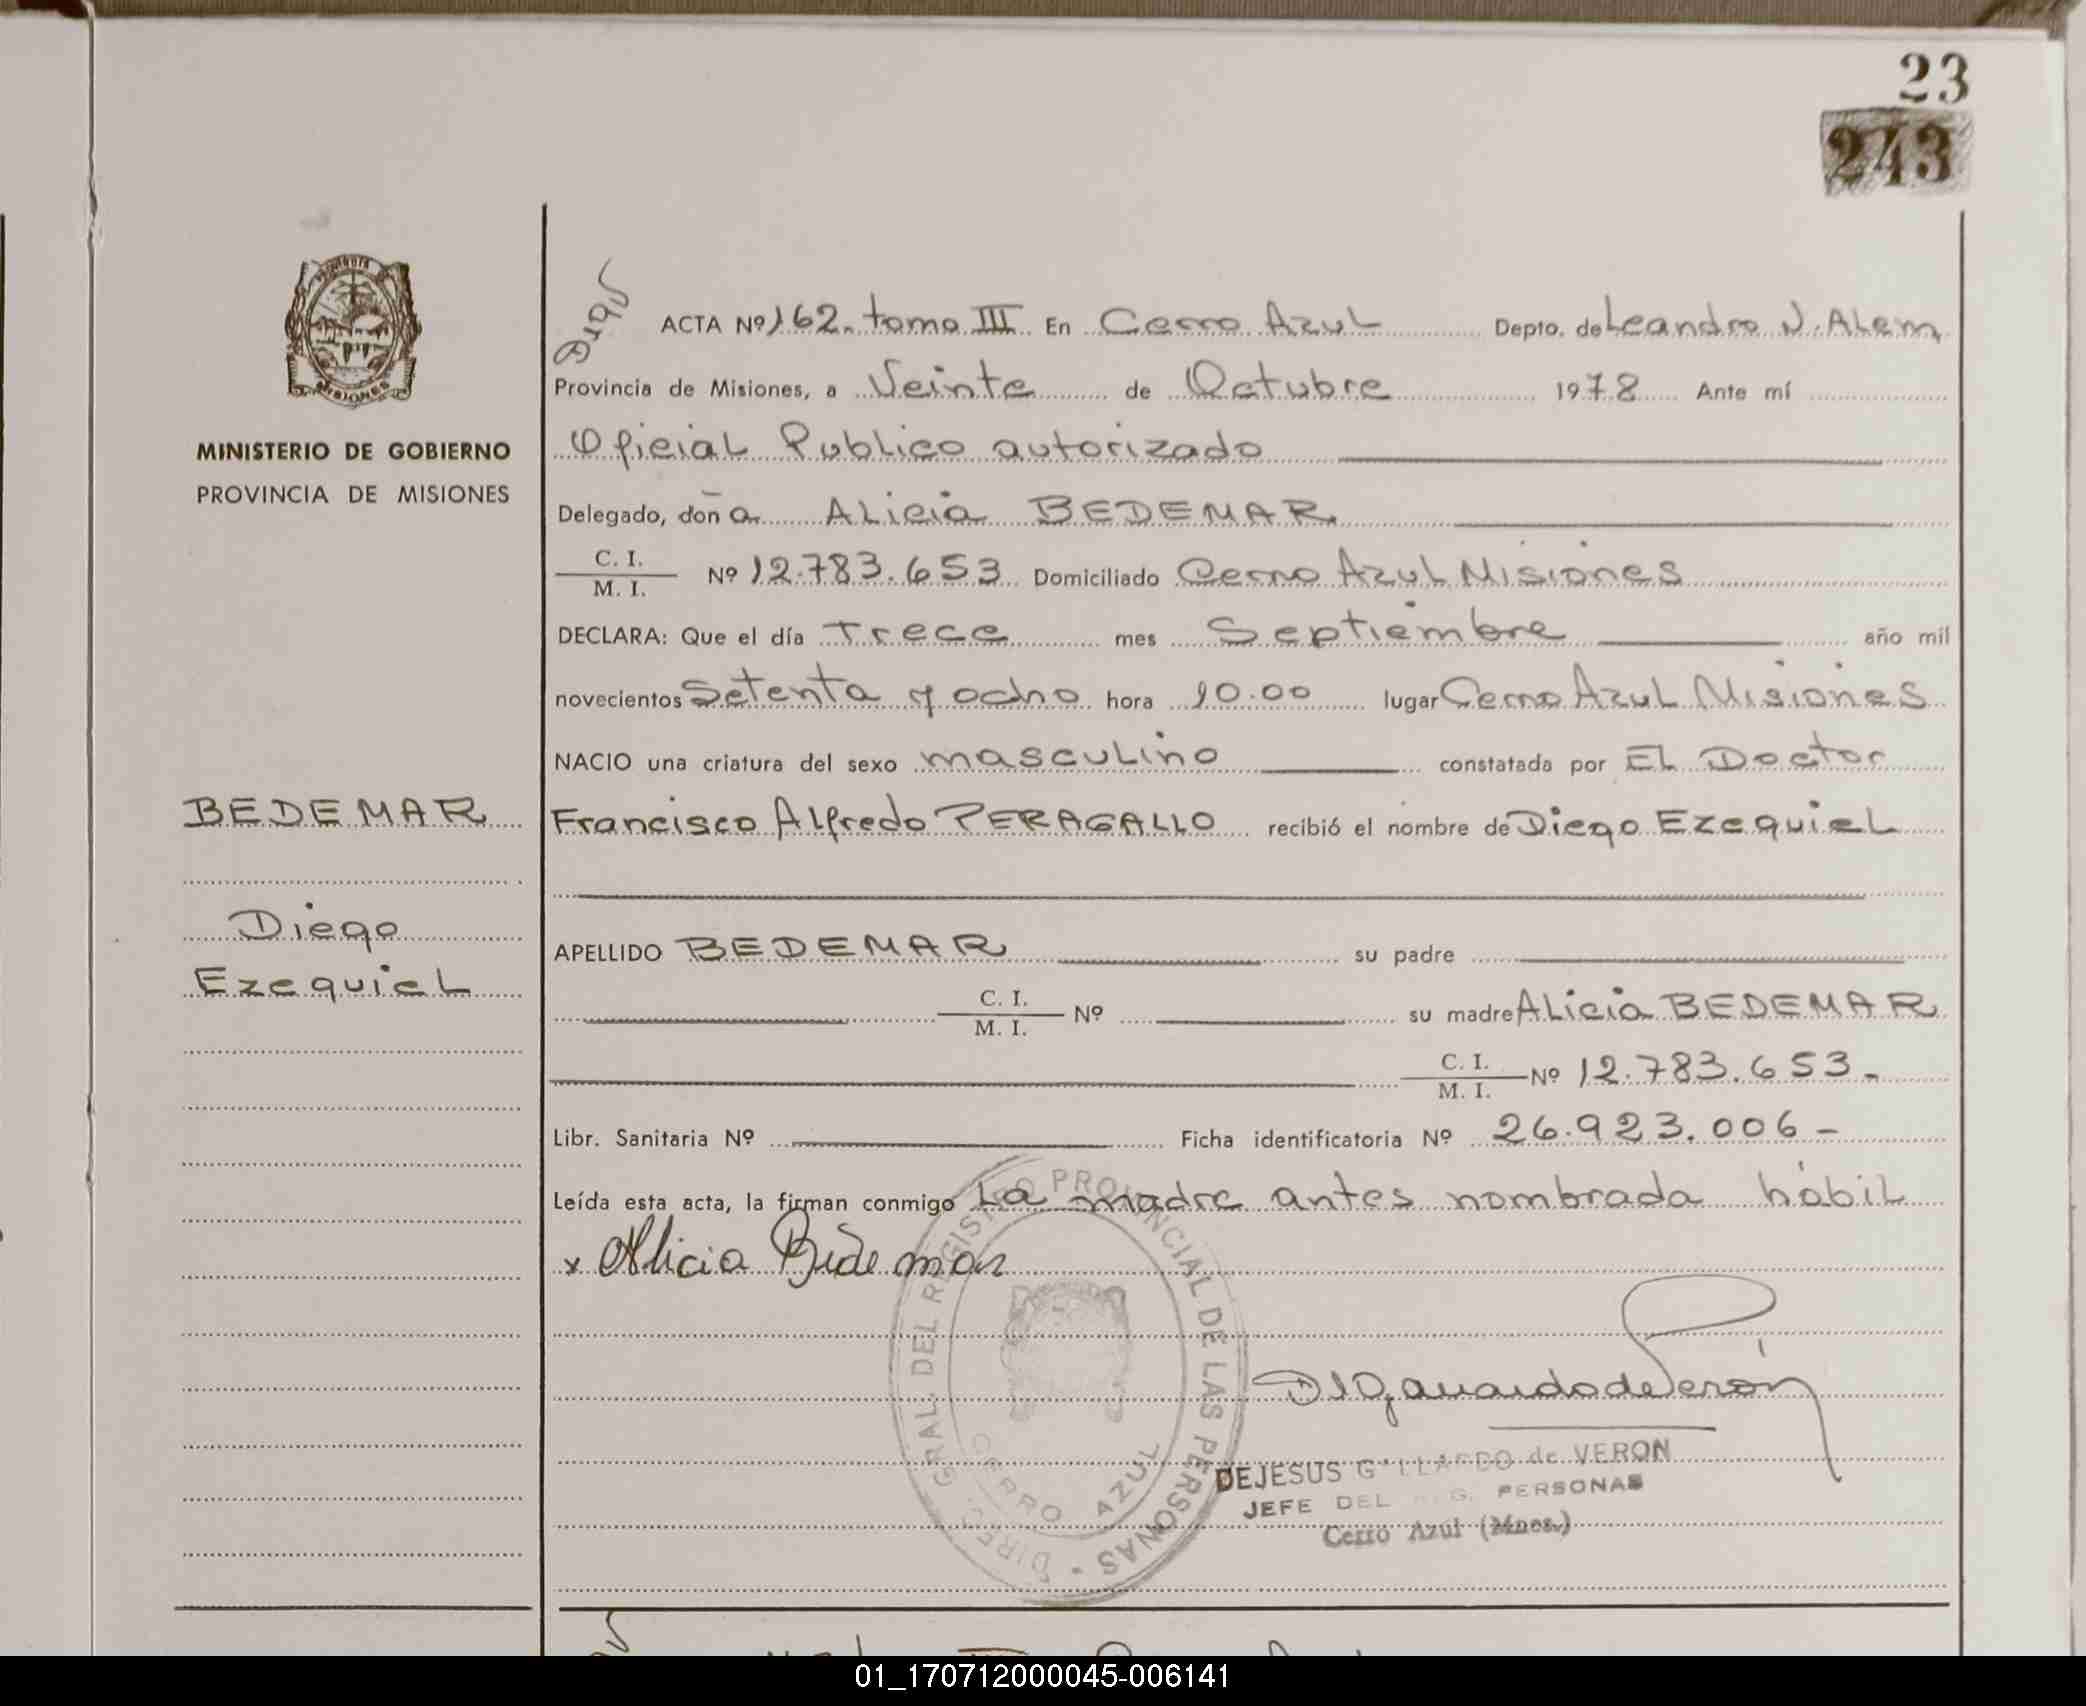 23
243
ACTA Nº 162. tomo III En Cerro Azul Depto. de Leandro N. Alem,
Provincia de Misiones, a Veinte de Octubre 1978 Ante mí
Oficial Publico autorizado
MINISTERIO DE GOBIERNO
PROVINCIA DE MISIONES
Delegado, doña Alicia BEDEMAR
C. I.
M. I. Nº 12.783.653 Domiciliado Cerro Azul Misiones
DECLARA: Que el día Trece mes Septiembre año mil
novecientos Setenta y ocho hora 10.00 lugar Cerro Azul Misiones
NACIO una criatura del sexo masculino constatada por El Doctor
Francisco Alfredo PERAGALLO recibió el nombre de Diego Ezequiel
BEDEMAR
Diego
Ezequiel
APELLIDO BEDEMAR su padre
C. I.
M. I. Nº su madre Alicia BEDEMAR
C. I.
M. I. Nº 12.783.653-
Libr. Sanitaria Nº Ficha identificatoria Nº 26.923.006-
Leída esta acta, la firman conmigo La madre antes nombrada hábil
x Alicia Bedemar
DIREC. GRAL. DEL REGISTRO PROVINCIAL DE LAS PERSONAS
CERRO AZUL
DEJESUS GALLARDO de VERON
JEFE DEL REG. PERSONAS
Cerro Azul (Mnes.)
01_170712000045-006141